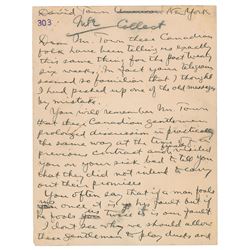 David Town New York
303
Collect
Dear Mr. Town these Canadian
folk have been telling us exactly
this same thing for the past
six weeks. In fact your telegram
seemed so familiar that I thought
I had picked up one of the old messages
by mistake.
You will remember Mr Town
that these Canadian gentlemen
prolonged discussion in practically
the same way at the time of
previous contract and visited
you on your sick bed to tell you
that they did not intend to carry
out their promises
You often say that if a man fools
you once it is his fault but if
he fools you twice it is our fault
I don't see why we should allow
these gentlemen to play ducks and